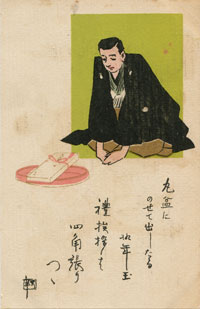 丸盆に
のせて出したる
お年玉
禮挨拶も
四角張り
つゝ